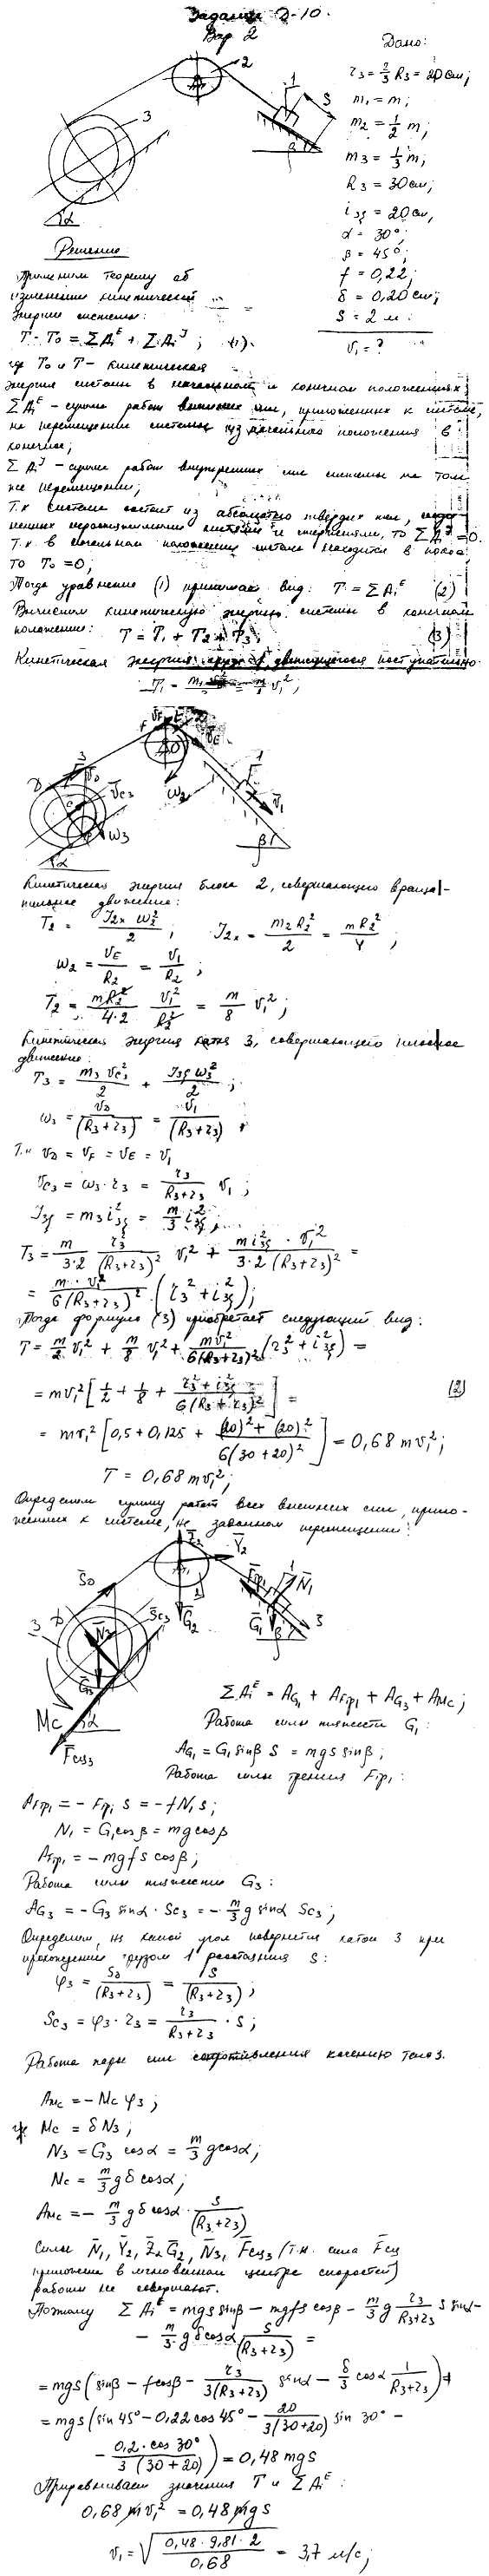 Задание Д-10.
Вар 2
Дано:
r₃ = ⅔ R₃ = 20 см;
m₁ = m;
m₂ = ½ m;
m₃ = ⅓ m;
R₃ = 30 см;
i₃ξ = 20 см,
α = 30°;
β = 45°;
f = 0,22;
δ = 0,20 см;
S = 2 м.
V₁ = ?
2
1
S
3
β
α
Решение
Применим теорему об
изменении кинетической
энергии системы:
T - T₀ = ΣAᵢᴱ + ΣAᵢᴶ; (1).
где T₀ и T - кинетическая
энергия системы в начальном и конечном положениях;
ΣAᵢᴱ - сумма работ внешних сил, приложенных к системе,
на перемещении системы из начального положения в
конечное;
ΣAᵢᴶ - сумма работ внутренних сил системы на том
же перемещении;
Т.к система состоит из абсолютно твердых тел, соеди-
ненных нерастяжимыми нитями и стержнями, то ΣAᵢᴶ = 0.
Т.к в начальном положении система находится в покое,
то T₀ = 0;
Тогда уравнение (1) принимает вид: T = ΣAᵢᴱ (2)
Вычислим кинетическую энергию системы в конечном
положении: T = T₁ + T₂ + T₃; (3)
Кинетическая энергия груза 1, движущегося поступательно
T₁ = m₁ V₁²;
3
D
V_D
V_C3
ω₃
α
F
E
V_E
ω₂
1
V₁
β
Кинетическая энергия блока 2, совершающего враща-
тельное движение:
T₂ = J₂ₓ ω₂² / 2; J₂ₓ = m₂R₂² / 2 = mR₂² / 4;
ω₂ = V_E / R₂ = V₁ / R₂;
T₂ = mR₂² / 4·2 · V₁² / R₂² = m/8 V₁²;
Кинетическая энергия катка 3, совершающего плоское
движение:
T₃ = m₃V_C3² / 2 + J₃ξ ω₃² / 2;
ω₃ = V_D / (R₃+r₃) = V₁ / (R₃+r₃);
Т.к V_D = V_F = V_E = V₁
V_C3 = ω₃·r₃ = r₃ / (R₃+r₃) V₁;
J₃ξ = m₃ i₃ξ² = m/3 i₃ξ²;
T₃ = m/3·2 · r₃² / (R₃+r₃)² V₁² + m i₃ξ² · V₁² / 3·2 (R₃+r₃)² =
= m·V₁² / 6(R₃+r₃)² · (r₃² + i₃ξ²);
Тогда формула (3) приобретает следующий вид:
T = m/2 V₁² + m/8 V₁² + mV₁² / 6(R₃+r₃)² (r₃² + i₃ξ²) =
= mV₁² [½ + ⅛ + (r₃² + i₃ξ²) / 6(R₃+r₃)²] = (2)
= mV₁² [0,5 + 0,125 + ((20)² + (20)²) / 6(30+20)²] = 0,68 mV₁²;
T = 0,68 mV₁²;
Определим сумму работ всех внешних сил, прило-
женных к системе, на заданном перемещении:
S_D
D
3
S_C3
N₃
G₃
Mc
α
F_сц3
Z₂
Y₂
2
G₂
F_тр1
1
N₁
G₁
β
S
ΣAᵢᴱ = A_G1 + A_Fтр1 + A_G3 + A_Mc;
Работа силы тяжести G₁:
A_G1 = G₁ sinβ S = mgs sinβ;
Работа силы трения Fтр₁:
A_Fтр1 = - Fтр₁ S = - f N₁ S;
N₁ = G₁cosβ = mgcosβ
A_Fтр1 = - mgfs cosβ;
Работа силы тяжести G₃:
A_G3 = - G₃ sinα · S_C3 = - m/3 g sinα S_C3;
Определим, на какой угол повернется каток 3 при
прохождении грузом 1 расстояния S:
φ₃ = S_D / (R₃+r₃) = S / (R₃+r₃);
S_C3 = φ₃·r₃ = r₃ / (R₃+r₃) · S;
Работа пары сил сопротивления качению тела 3.
A_Mc = - Mc φ₃;
где Mc = δ N₃;
N₃ = G₃ cosα = m/3 g cosα;
Mc = m/3 g δ cosα;
A_Mc = - m/3 g δ cosα · S / (R₃+r₃)
Силы N̄₁, Ȳ₂, Z̄₂, Ḡ₂, N̄₃, F̄сц₃ (т.к. сила F̄сц
приложена в мгновенном центре скоростей)
работы не совершают.
Поэтому ΣAᵢᴱ = mgs sinβ - mgfs cosβ - m/3 g r₃ / (R₃+r₃) S sinα -
- m/3 g δ cosα S / (R₃+r₃) =
= mgs (sinβ - fcosβ - r₃ / 3(R₃+r₃) sinα - δ/3 cosα 1 / (R₃+r₃)) =
= mgs (sin 45° - 0,22 cos 45° - 20 / 3(30+20) sin 30° -
- 0,2·cos 30° / 3(30+20)) = 0,48 mgs
Приравниваем значения T и ΣAᵢᴱ:
0,68 mV₁² = 0,48 mgs
V₁ = √(0,48·9,81·2 / 0,68) = 3,7 м/с;